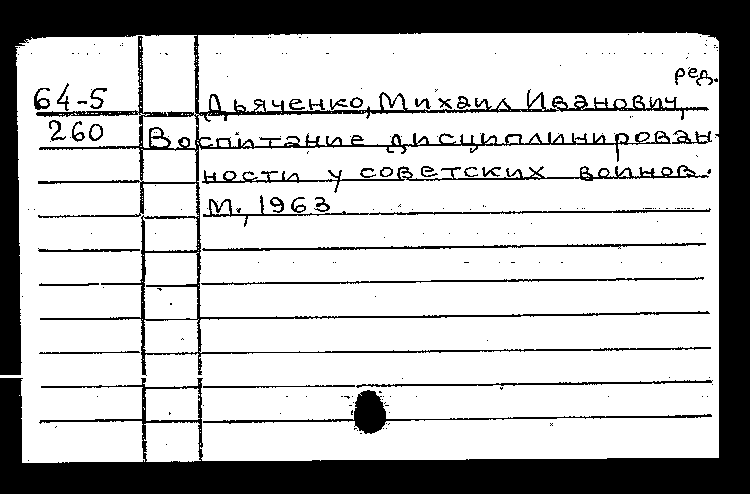 ред.
64-5 Дьяченко, Михаил Иванович,
260 Воспитание дисциплинирован-
ности у советских воинов.
М., 1963